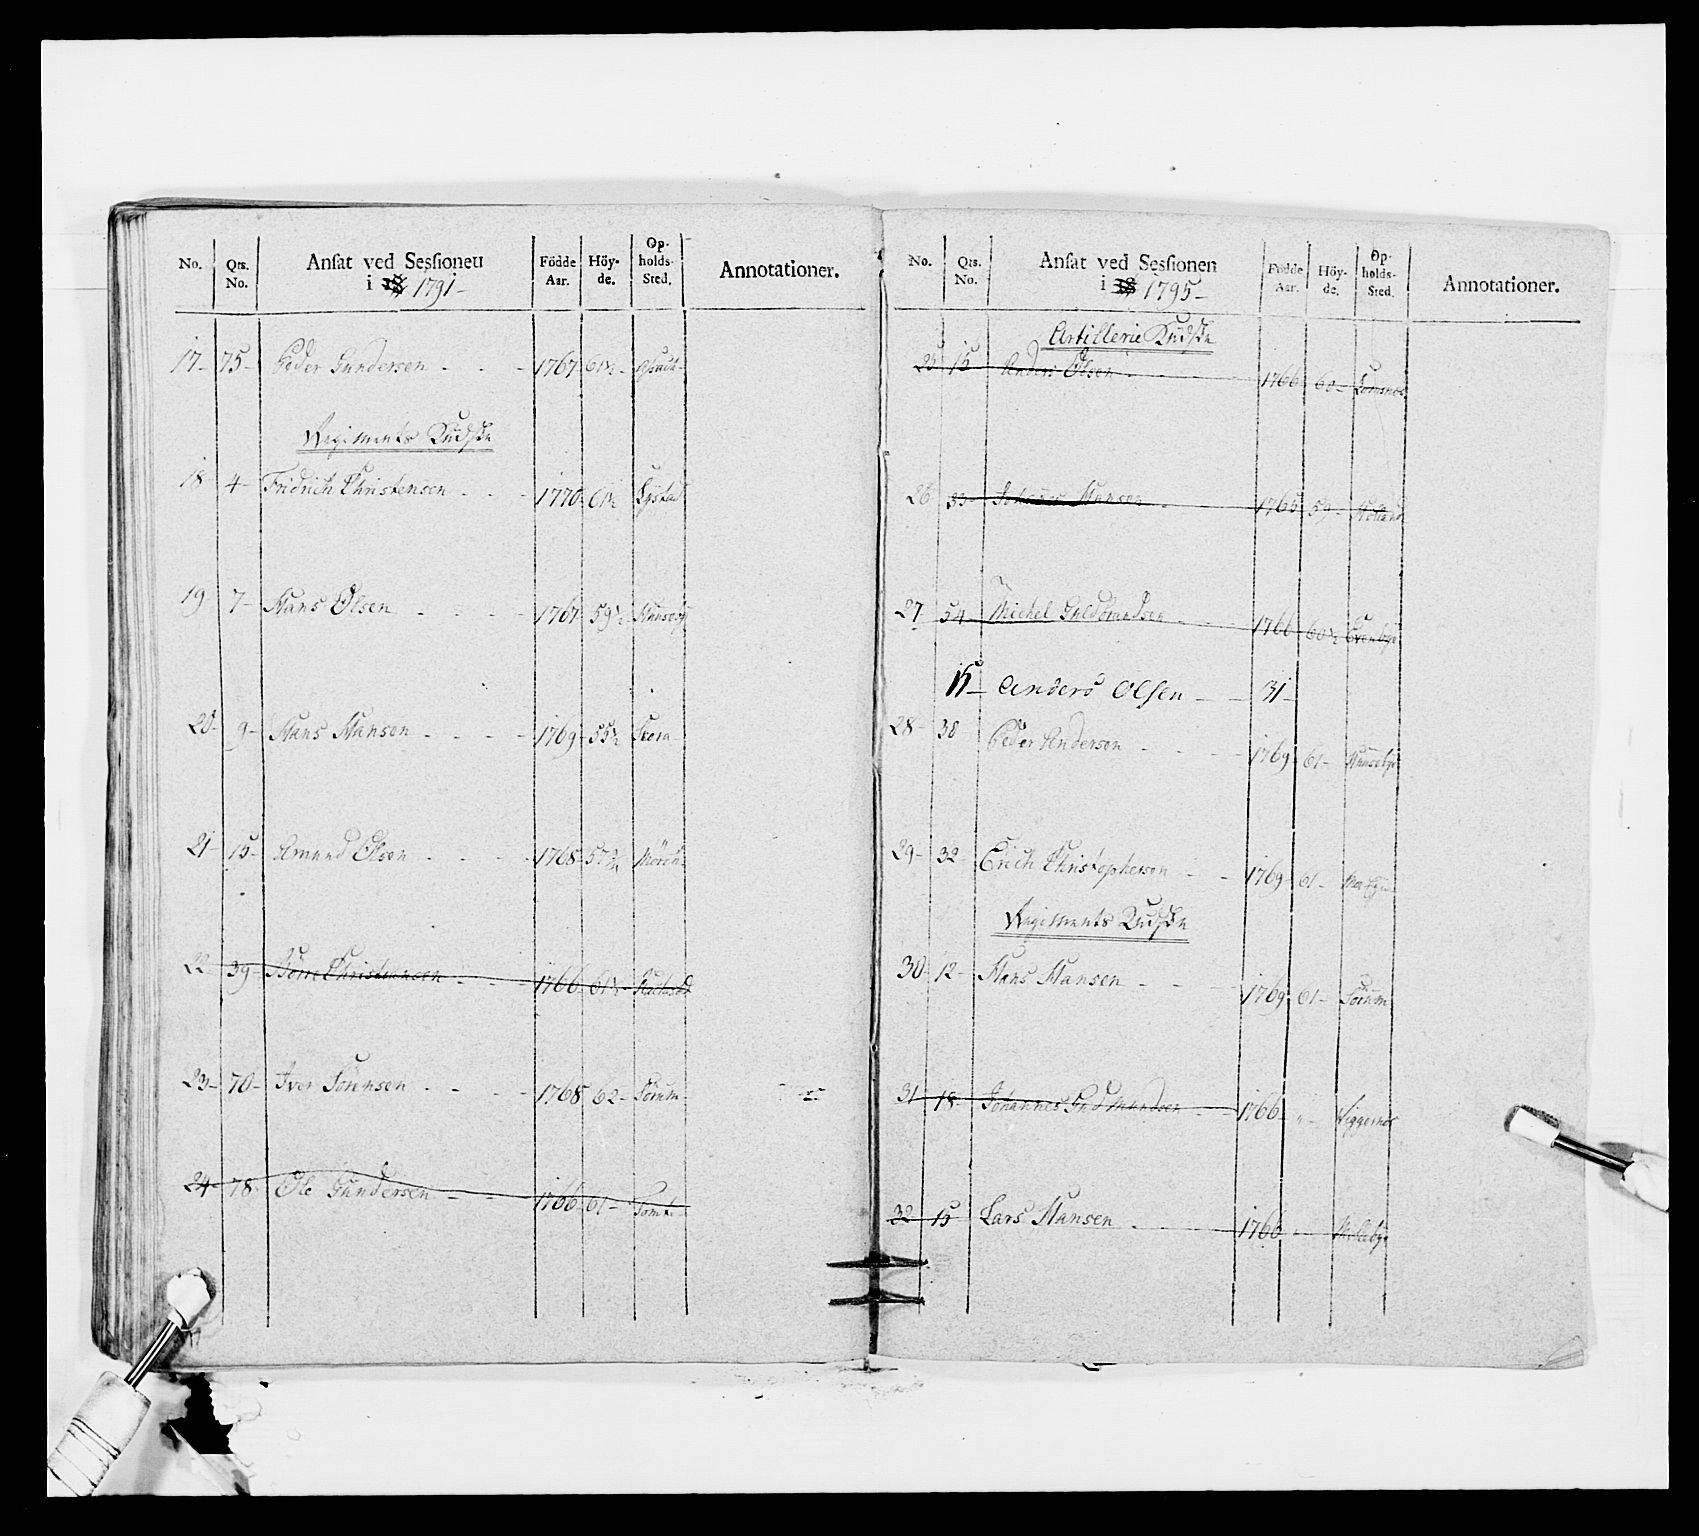 No. Qts. No. Ansat ved Sessionen i 1791- Födde Aar. Höyde. Opholds-Sted. Annotationer.
17- 75- Peder Gundersen - - - 1767- 61½-
Regiments Kudske
18- 4- Fridrich Christensen - - - 1770- 61½
19 7- Hans Olsen - - - 1767- 59½-
20- 9- Hans Hansen - - - 1769- 55½
21- 15- Amund Olsen - - - 1768-
22- 39- Christiansen - - - 1766- 61½-
23- 70- Iver Sörensen - - - 1768 62- Sörum
24- 78- Ole Gundersen - - - 1766- 61-
No. Qts. No. Ansat ved Sessionen i 1795- Födde Aar. Höyde. Opholds-Sted. Annotationer.
Artillerie Kudske
25 15 Anders Olsen - - - 1766 60-
26 33- Johannes Hansen - - - 1765 59-
27- 54- Michel Guldbrandsen - - - 1766 60½
15- Anders Olsen - - 31-
28- 38 Peder Andersen - - - 1769 61-
29- 32 Erich Christophersen - - 1769 61-
Regiments Kudske
30- 12- Hans Hansen - - - 1769 61- Sörum
31 18- Johannes Gudmundsen - 1766- " -
32 15 Lars Hansen - - - 1766 "